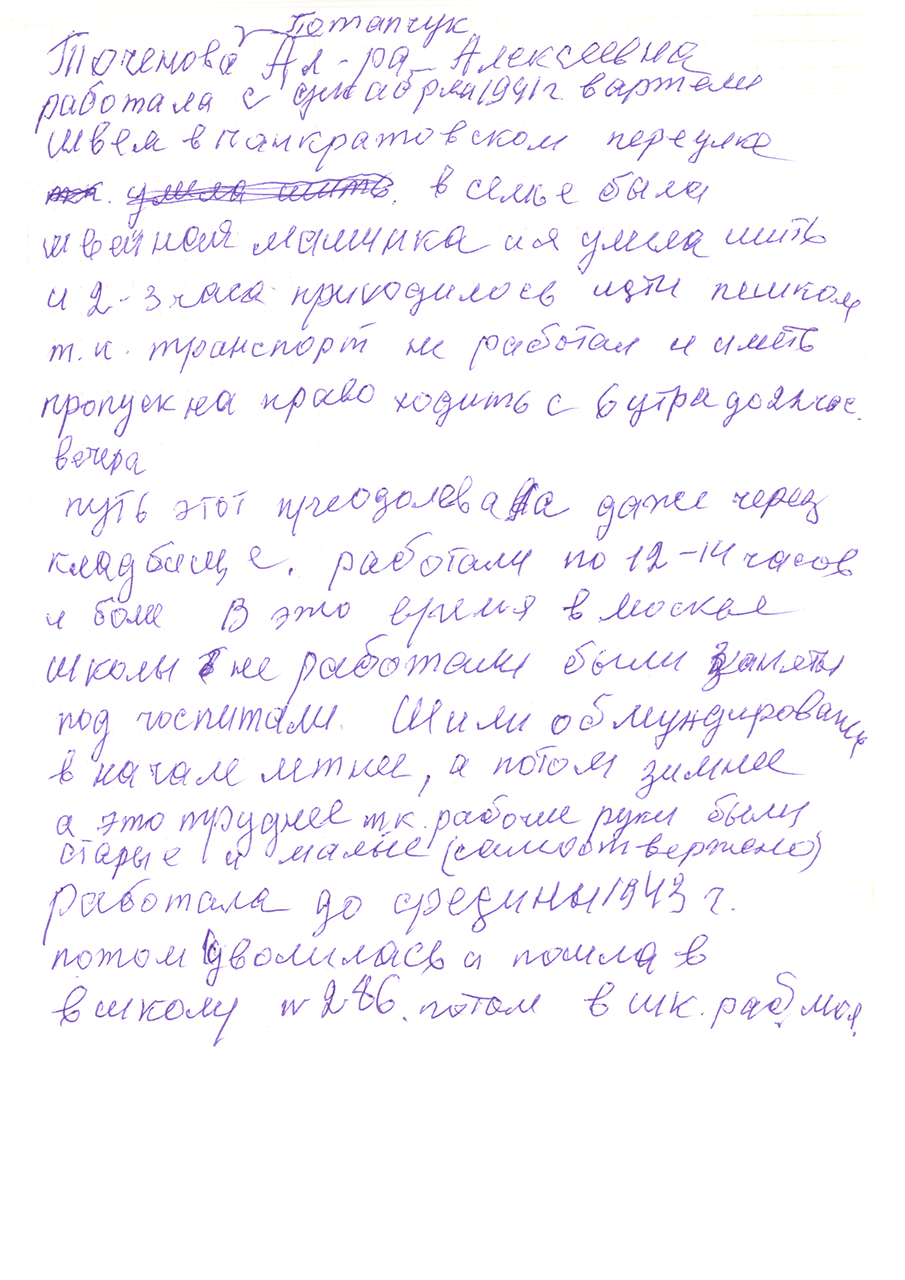 Потапчук
Точенова Ал-ра Алексеевна
работала с декабря 1941 г. в артели
Швея в панкратовском переулке
тк. умела шить. в семье была
швейная машинка и я умела шить
и 2-3 часа приходилось идти пешком
т.к. транспорт не работал и иметь
пропуск на право ходить с 6 утра до 22 час.
вечера
путь этот преодолевала даже через
кладбище. работали по 12-14 часов
и боле В это время в москве
школы не работали были заняты
под госпитали. Шили обмундирование
в начале летнее, а потом зимнее
а это труднее т.к. рабочие руки были
старые и малые (самоотвержено)
Работала до средины 1943 г.
потом уволилась и пошла в
в школу №286. потом в шк. раб. мол.